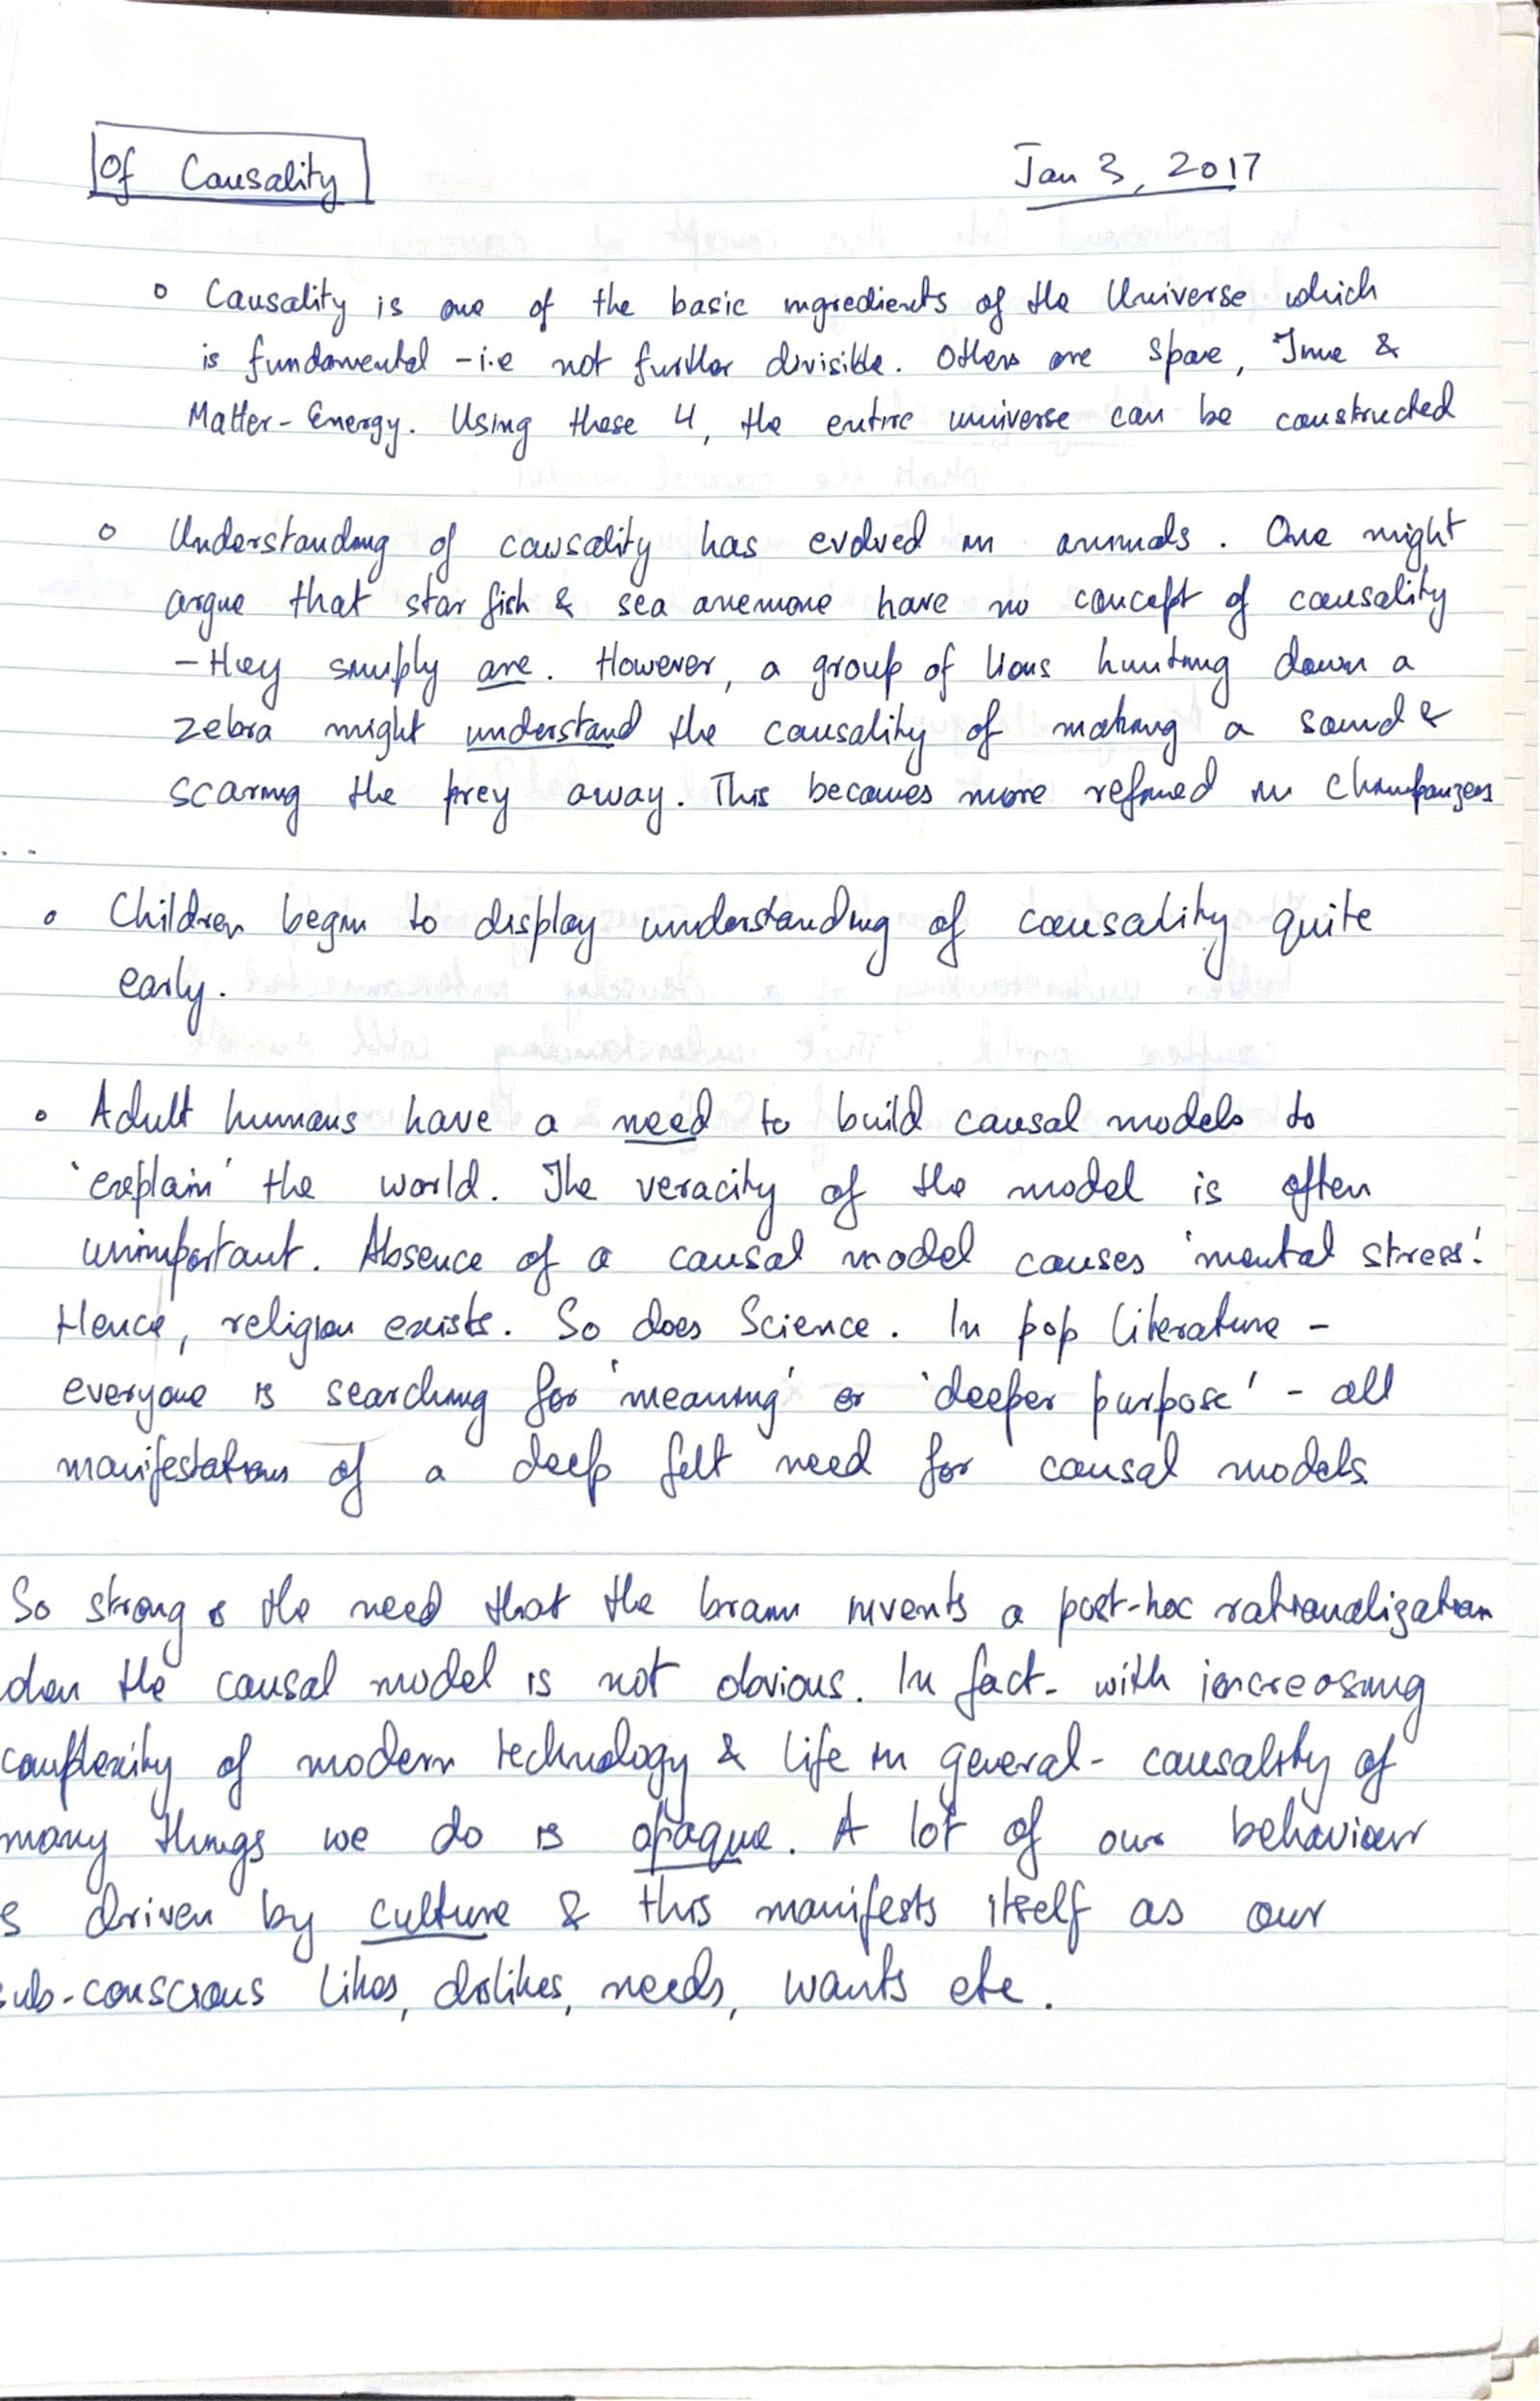 Of Causality
Jan 3, 2017
Causality is one of the basic ingredients of the Universe which
is fundamental - i.e not further divisible. Others are Space, Time &
Matter - Energy. Using these 4, the entire universe can be constructed
Understanding of causality has evolved in animals. One might
argue that star fish & sea anemone have no concept of causality
- they simply are. However, a group of lions hunting down a
zebra might understand the causality of making a sound &
scaring the prey away. This becomes more refined in Chimpanzees
..
Children begin to display understanding of causality quite
early.
Adult humans have a need to build causal models to
'explain' the world. The veracity of the model is often
unimportant. Absence of a causal model causes 'mental stress'.
Hence, religion exists. So does Science. In pop literature -
everyone is searching for 'meaning' or 'deeper purpose' - all
manifestations of a deep felt need for causal models.
So strong is the need that the brain invents a post-hoc rationalization
the causal model is not obvious. In fact - with increasing
complexity of modern technology & life in general - causality of
many things we do is opaque. A lot of our behaviour
s driven by culture & this manifests itself as our
sub-conscious likes, dislikes, needs, wants etc.